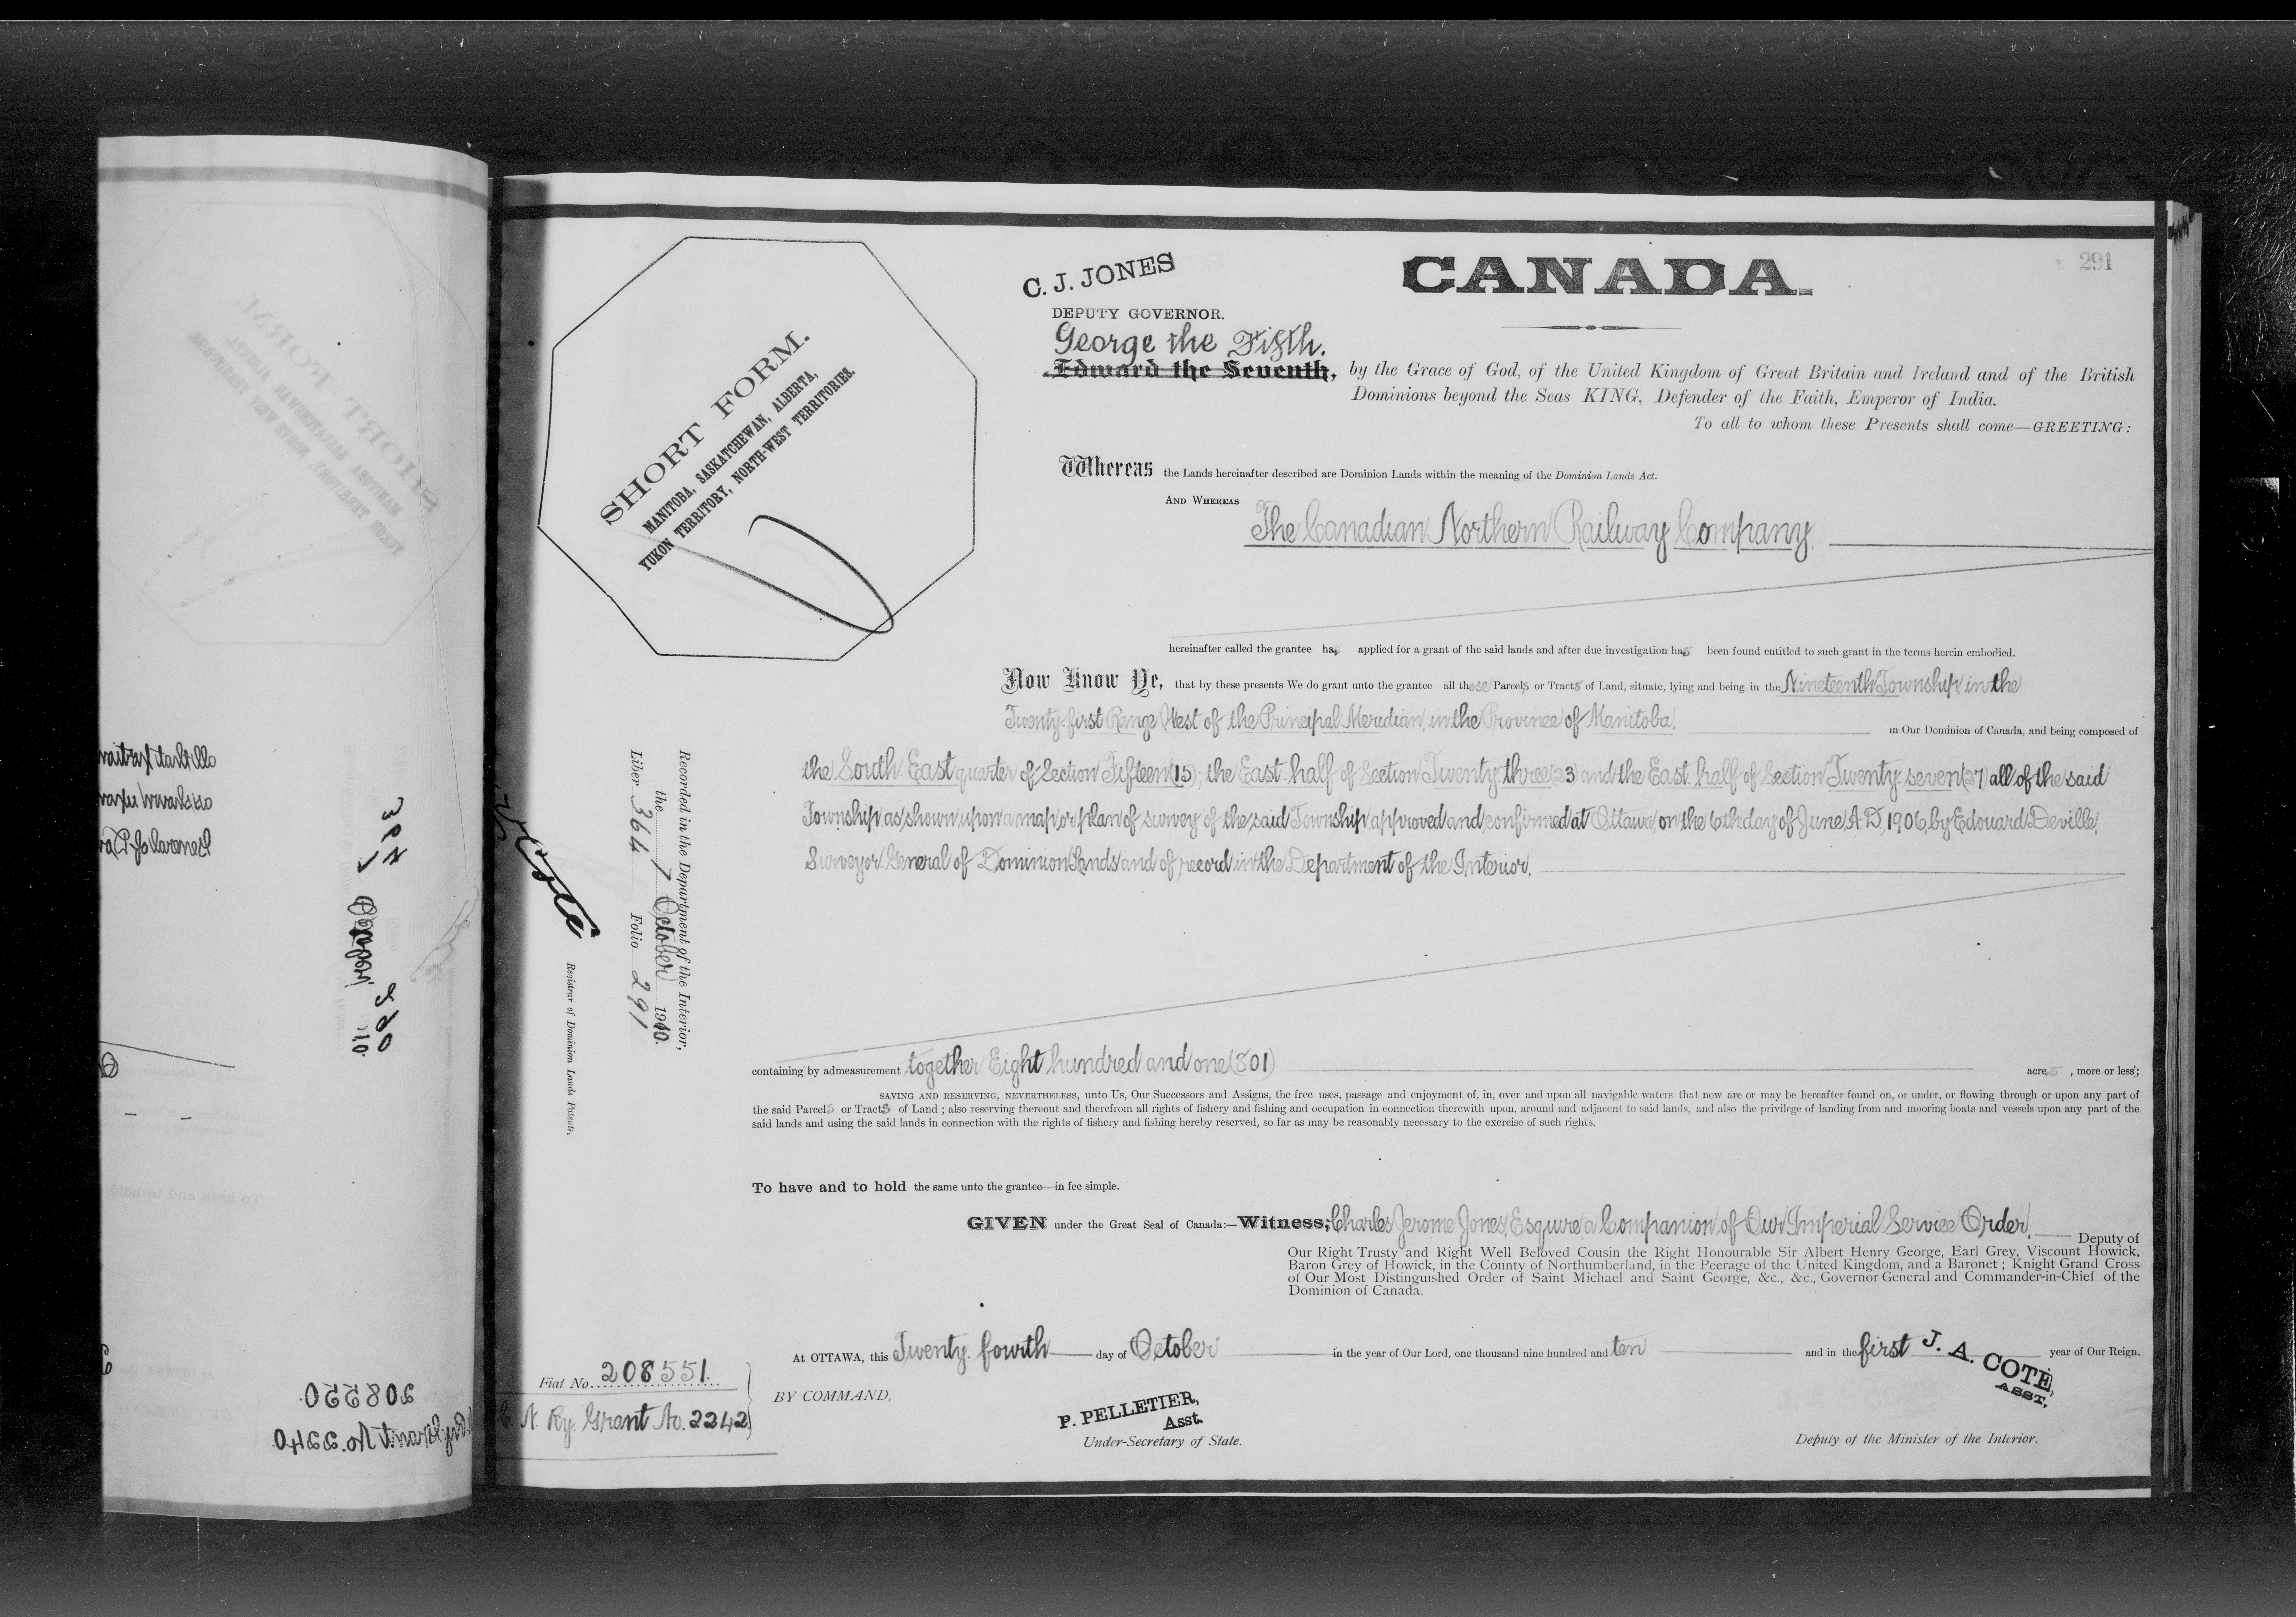 C. J. JONES
CANADA.
291
DEPUTY GOVERNOR.
George the Fifth.
Edward the Seventh, by the Grace of God, of the United Kingdom of Great Britain and Ireland and of the British
Dominions beyond the Seas KING, Defender of the Faith, Emperor of India.
To all to whom these Presents shall come—GREETING:
SHORT FORM.
MANITOBA, SASKATCHEWAN, ALBERTA,
YUKON TERRITORY, NORTH-WEST TERRITORIES.
Whereas the Lands hereinafter described are Dominion Lands within the meaning of the Dominion Lands Act.
AND WHEREAS
The Canadian Northern Railway Company
hereinafter called the grantee has applied for a grant of the said lands and after due investigation has been found entitled to such grant in the terms herein embodied.
Now Know Ye, that by these presents We do grant unto the grantee all those Parcels or Tracts of Land, situate, lying and being in the Nineteenth Township in the
Twenty-first Range West of the Principal Meridian, in the Province of Manitoba. in Our Dominion of Canada, and being composed of
the South East quarter of Section Fifteen (15), the East half of Section Twenty three (23) and the East half of Section Twenty seven (27) all of the said
Township as shown upon a map or plan of survey of the said Township approved and confirmed at Ottawa, on the 6th day of June A.D. 1906, by Edouard Deville,
Surveyor General of Dominion Lands and of record in the Department of the Interior.
Recorded in the Department of the Interior,
the 7 October 1910.
Liber 364 Folio 291
Registrar of Dominion Lands Patents.
containing by admeasurement together Eight hundred and one (801) acres, more or less;
SAVING AND RESERVING, NEVERTHELESS, unto Us, Our Successors and Assigns, the free uses, passage and enjoyment of, in, over and upon all navigable waters that now are or may be hereafter found on, or under, or flowing through or upon any part of
the said Parcels or Tracts of Land; also reserving thereout and therefrom all rights of fishery and fishing and occupation in connection therewith upon, around and adjacent to said lands, and also the privilege of landing from and mooring boats and vessels upon any part of the
said lands and using the said lands in connection with the rights of fishery and fishing hereby reserved, so far as may be reasonably necessary to the exercise of such rights.
To have and to hold the same unto the grantee—in fee simple.
GIVEN under the Great Seal of Canada:—Witness, Charles Jerome Jones, Esquire, a Companion of Our Imperial Service Order, Deputy of
Our Right Trusty and Right Well Beloved Cousin the Right Honourable Sir Albert Henry George, Earl Grey, Viscount Howick,
Baron Grey of Howick, in the County of Northumberland, in the Peerage of the United Kingdom, and a Baronet; Knight Grand Cross
of Our Most Distinguished Order of Saint Michael and Saint George, &c., &c., Governor General and Commander-in-Chief of the
Dominion of Canada.
At OTTAWA, this Twenty-fourth day of October in the year of Our Lord, one thousand nine hundred and ten and in the first year of Our Reign.
J. A. COTÉ,
ASST.
Fiat No. 208551.
C. N. Ry. Grant No. 2242
BY COMMAND,
P. PELLETIER,
Asst.
Under-Secretary of State.
Deputy of the Minister of the Interior.